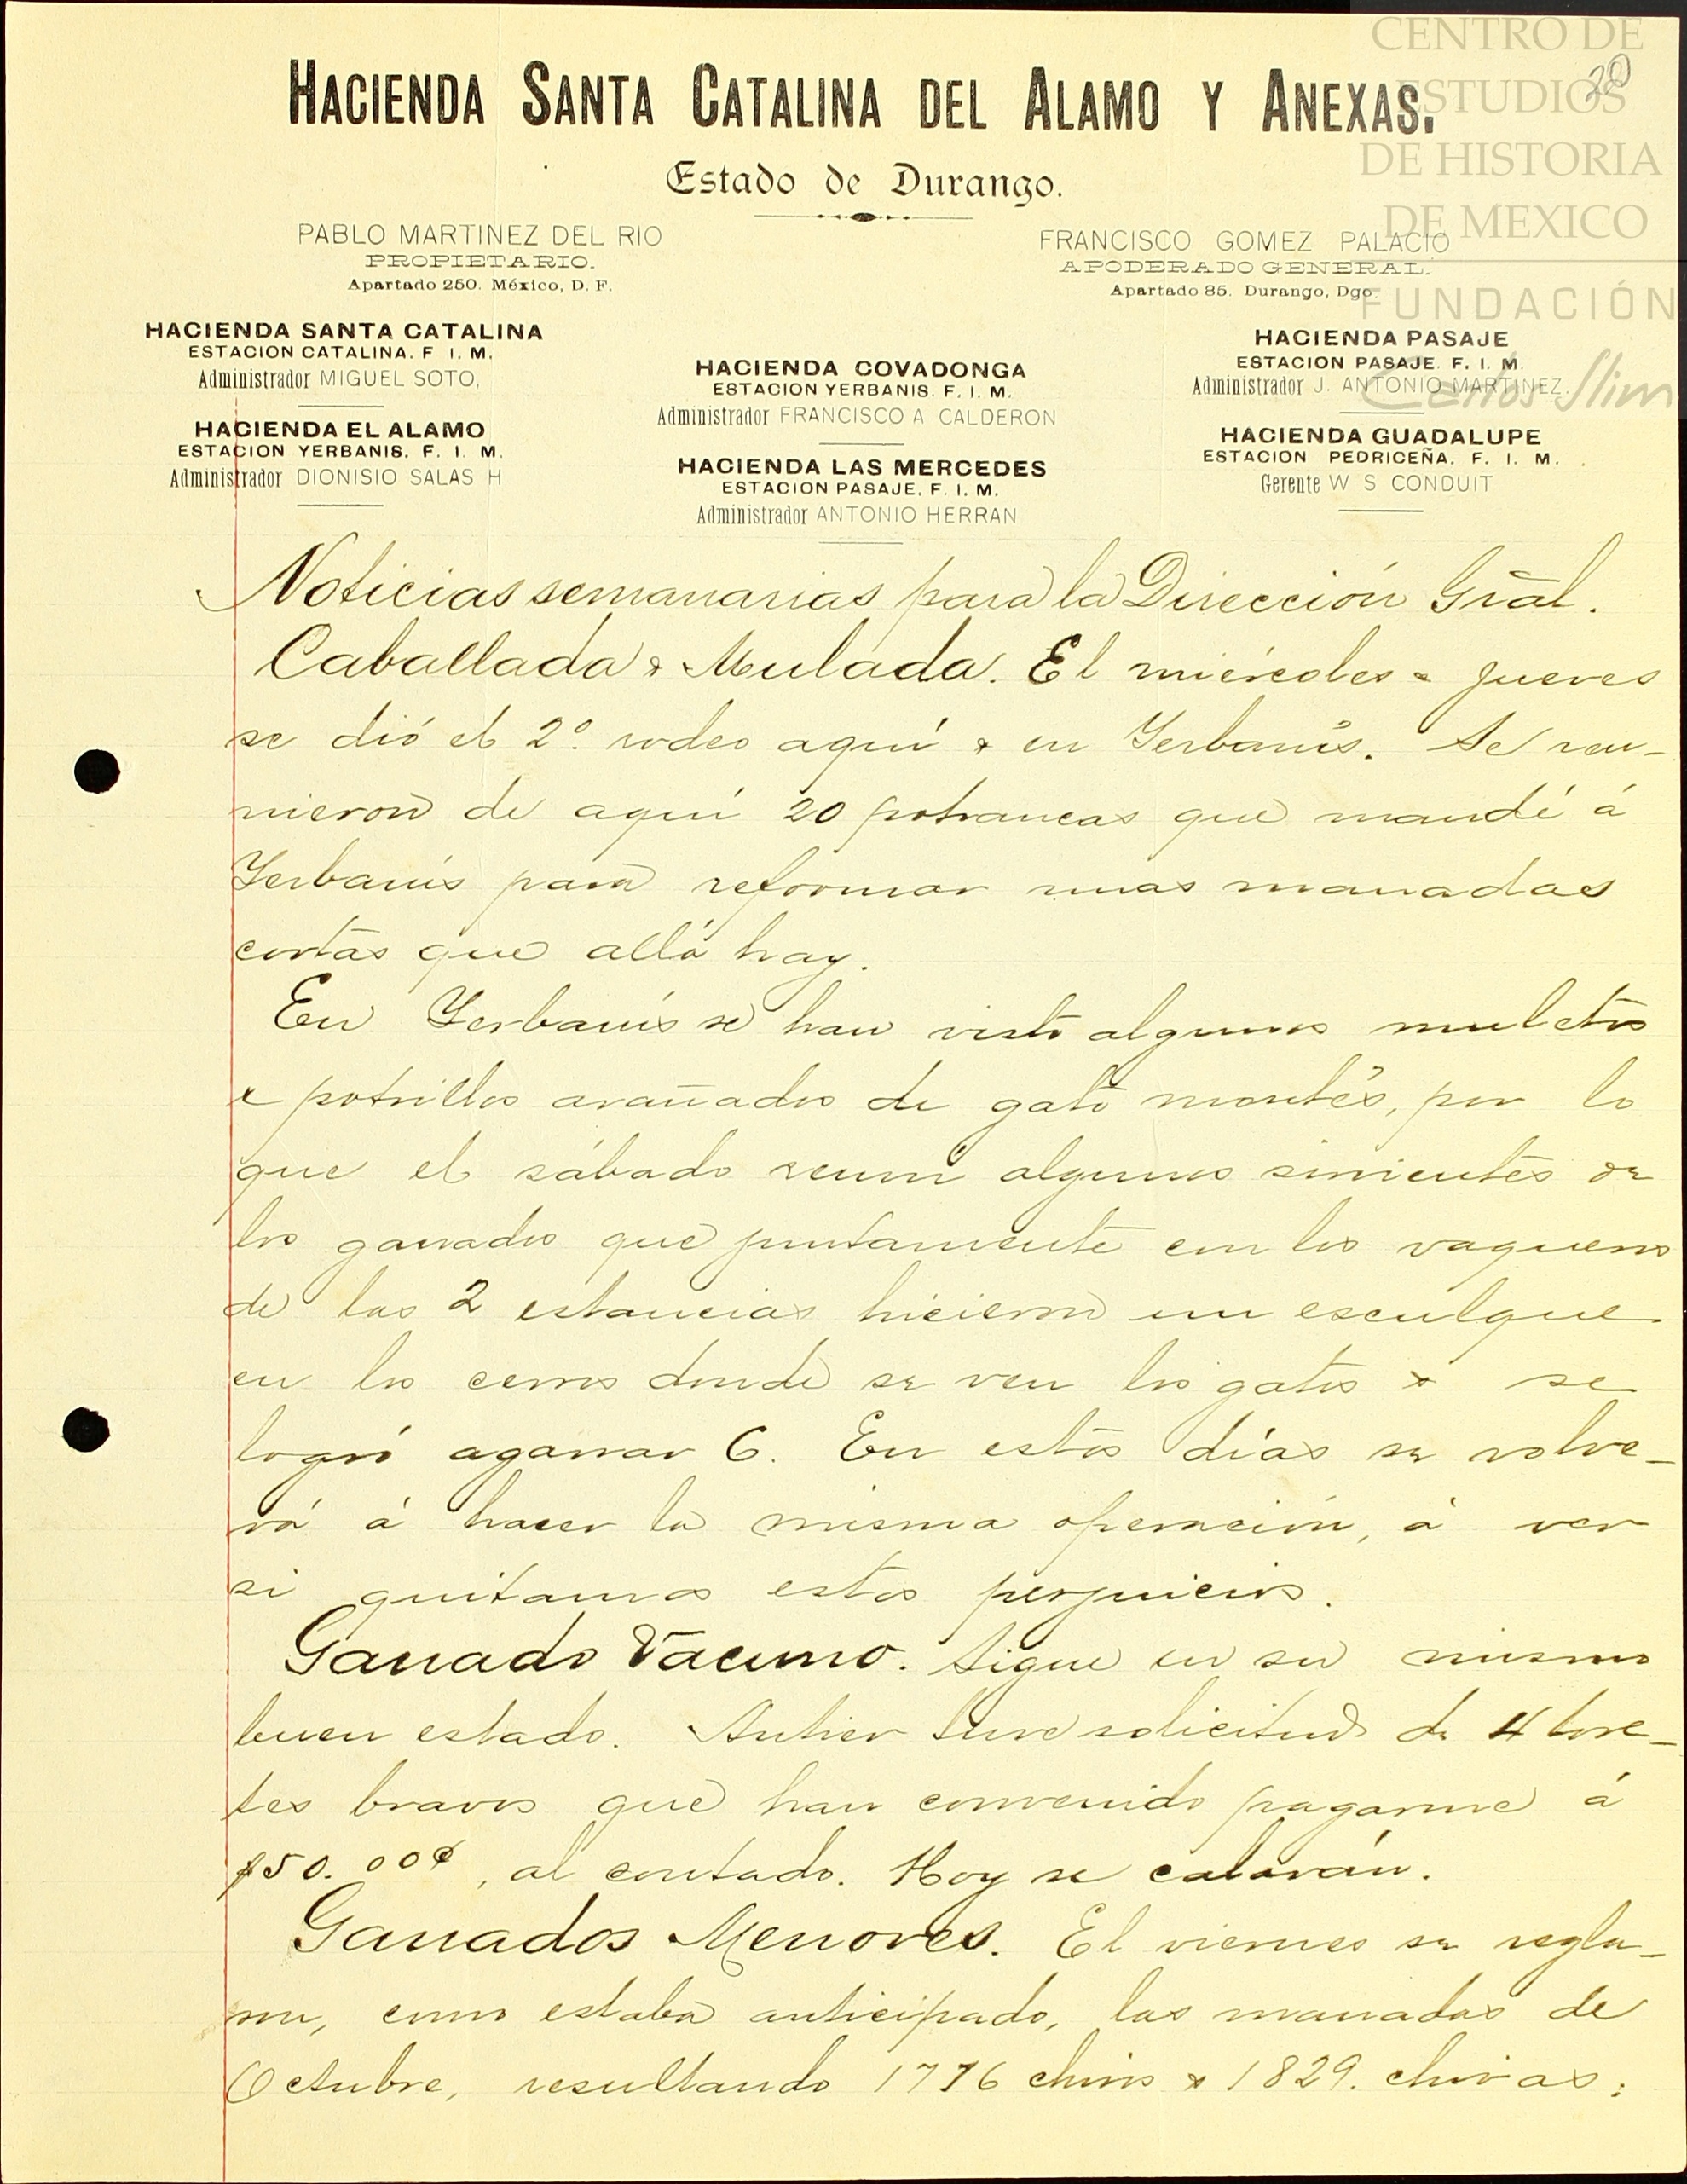 CENTRO DE
ESTUDIOS
DE HISTORIA
DE MEXICO
FUNDACIÓN
Carlos Slim
20
HACIENDA SANTA CATALINA DEL ALAMO Y ANEXAS.
Estado de Durango.
PABLO MARTINEZ DEL RIO
PROPIETARIO.
Apartado 250. México, D. F.
FRANCISCO GOMEZ PALACIO
APODERADO GENERAL.
Apartado 85. Durango, Dgo.
HACIENDA SANTA CATALINA
ESTACION CATALINA. F I. M.
Administrador MIGUEL SOTO,
HACIENDA EL ALAMO
ESTACION YERBANIS. F. I. M.
Administrador DIONISIO SALAS H
HACIENDA COVADONGA
ESTACION YERBANIS. F. I. M.
Administrador FRANCISCO A CALDERON
HACIENDA LAS MERCEDES
ESTACION PASAJE. F. I. M.
Administrador ANTONIO HERRAN
HACIENDA PASAJE
ESTACION PASAJE. F. I. M
Administrador J. ANTONIO MARTINEZ.
HACIENDA GUADALUPE
ESTACION PEDRICEÑA. F. I. M.
Gerente W S CONDUIT
Noticias semanarias para la Dirección Gral.
Caballada & Mulada. El miércoles & jueves
se dió el 2º. rodeo aquí & en Yerbanís. Se reu-
nieron de aquí 20 potrancas que mandé á
Yerbanís para reformar unas manadas
cortas que allá hay.
En Yerbanís se han visto algunos muletos
& potrillos arañados de gato montés, por lo
que el sábado reuní algunos sirvientes de
los ganados que juntamente con los vaqueros
de las 2 estancias hicieron un esculque
en los cerros donde se ven los gatos & se
logró agarrar 6. En estos días se volve-
rá á hacer la misma operación, á ver
si quitamos estos perjuicios.
Ganado Vacuno. Sigue en su mismo
buen estado. Antier tuve solicitud de 4 tore-
tes bravos que han convenido pagarme á
$50.00¢, al contado. Hoy se calarán.
Ganados Menores. El viernes se regla-
ron, como estaba anticipado, las manadas de
Octubre, resultando 1776 chivos & 1829. chivas;